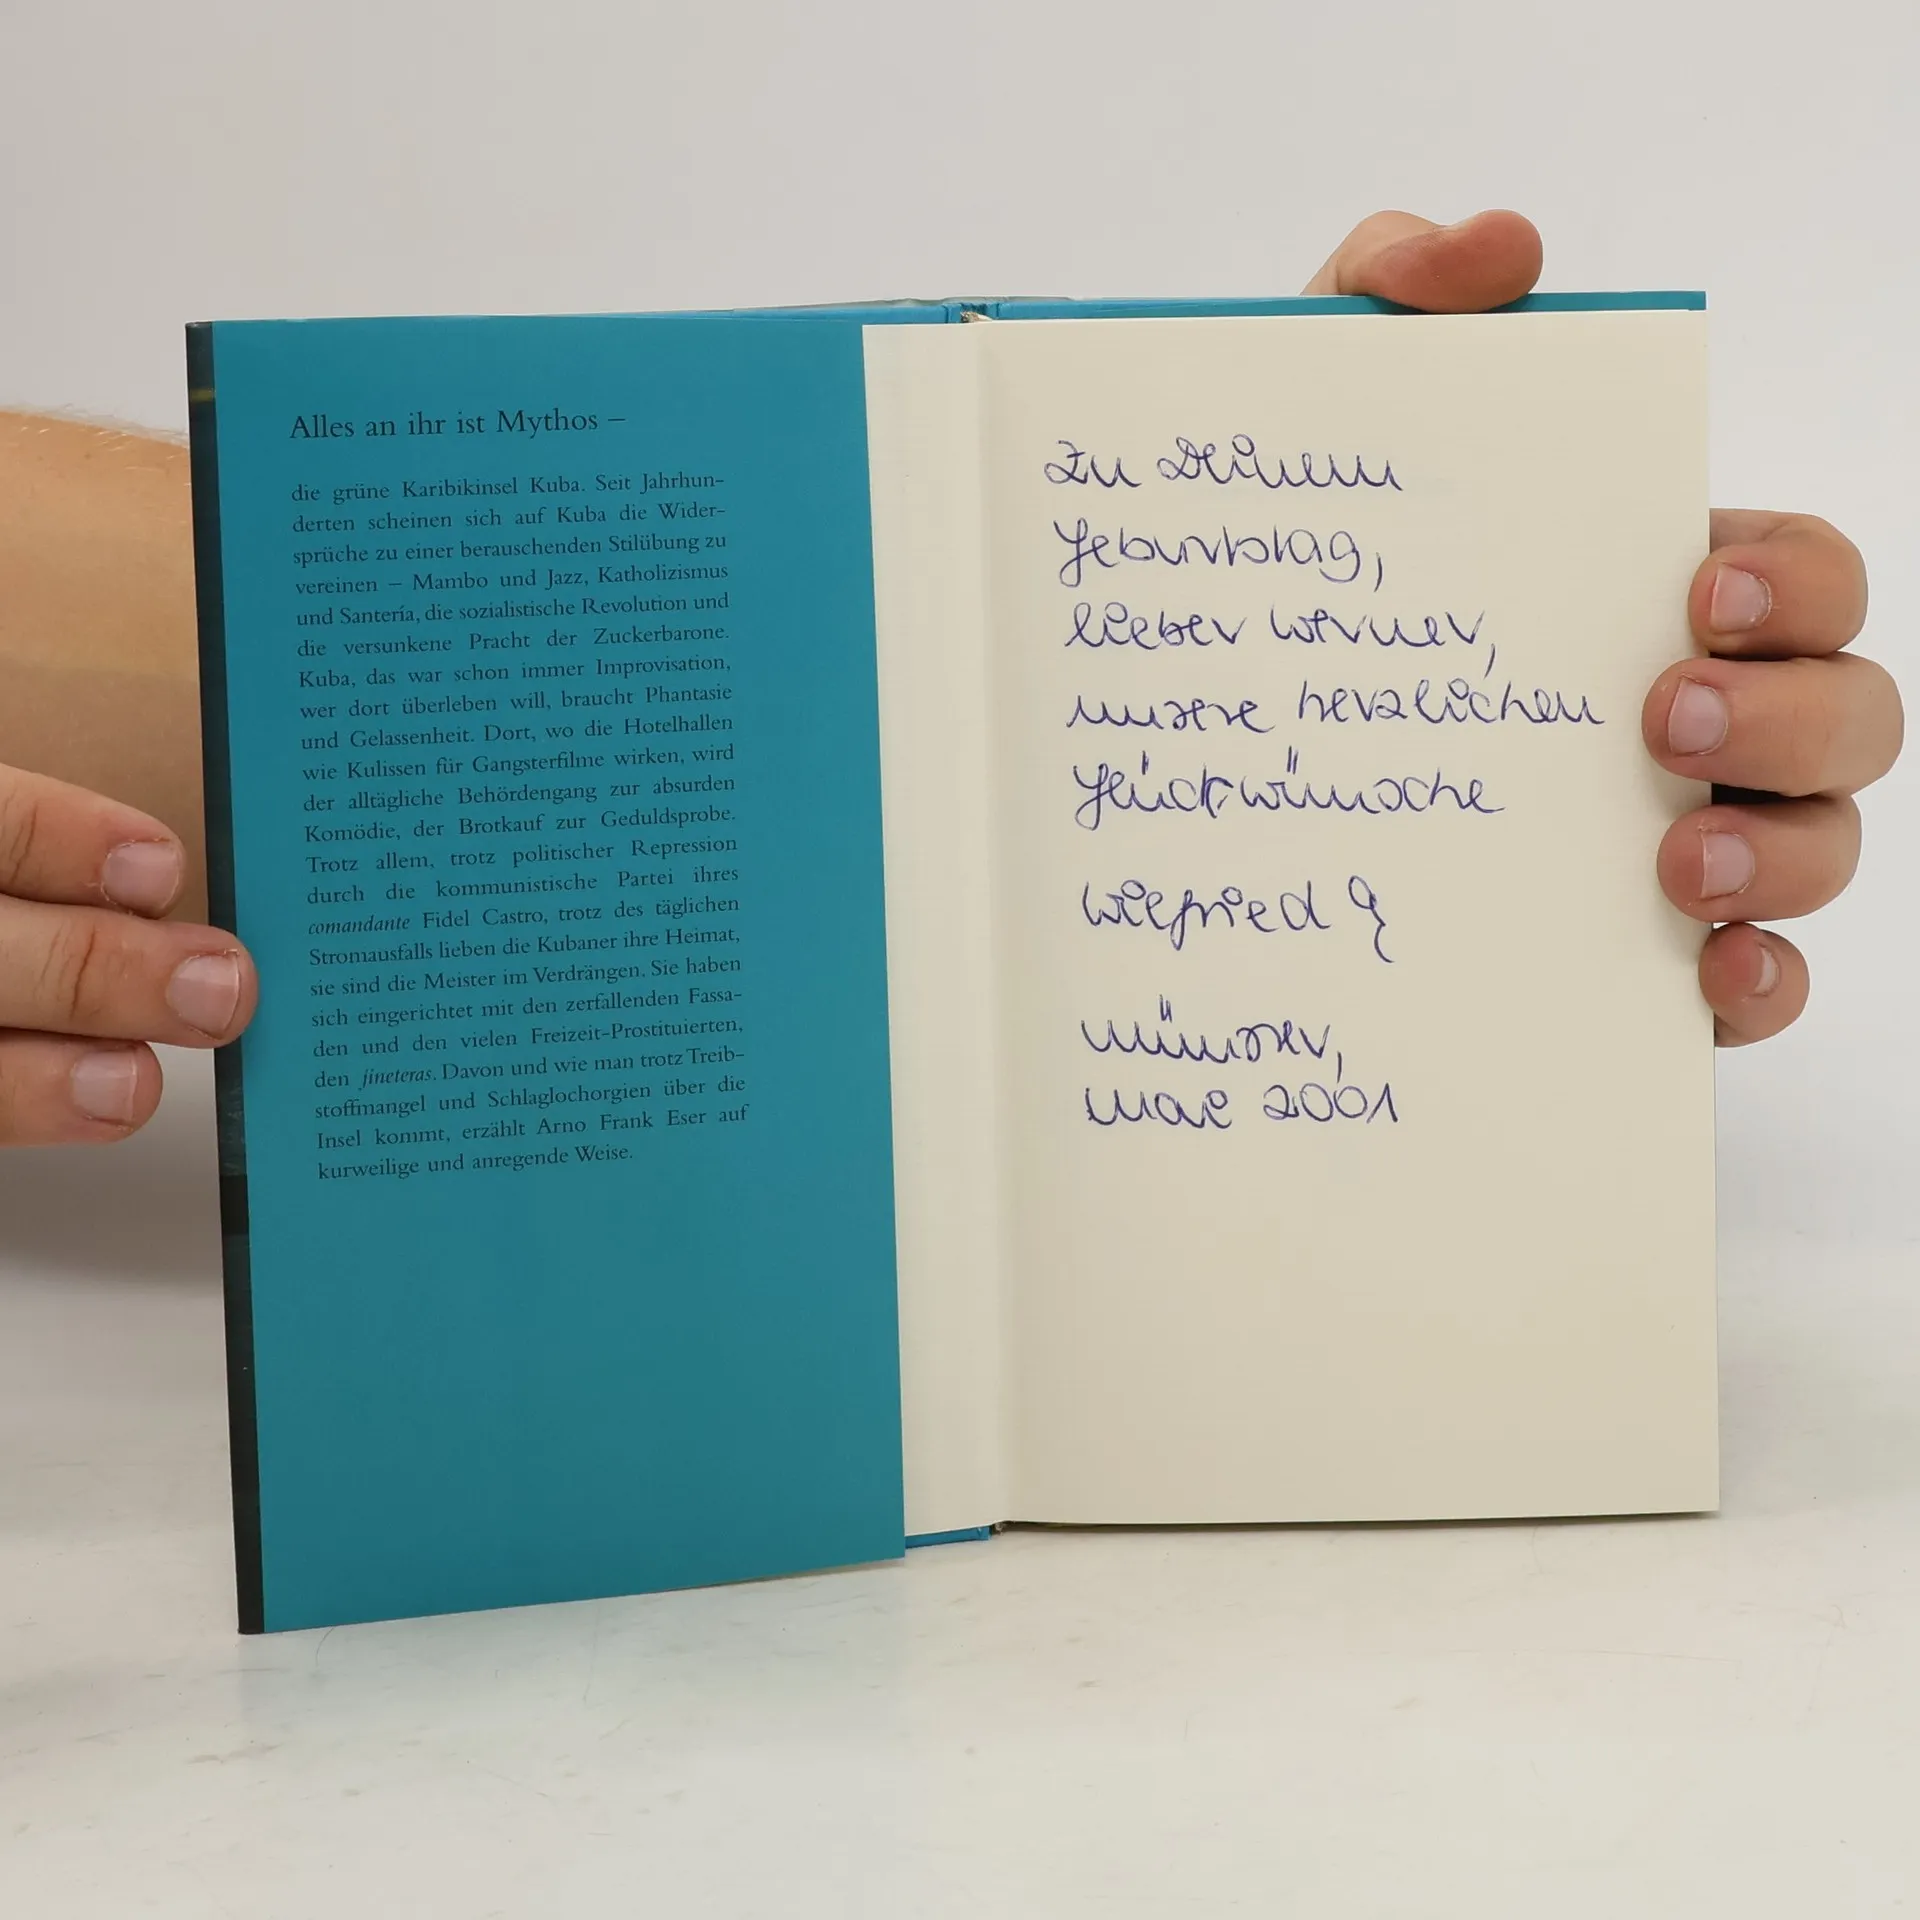 Alles an ihr ist Mythos –
die grüne Karibikinsel Kuba. Seit Jahrhun-
derten scheinen sich auf Kuba die Wider-
sprüche zu einer berauschenden Stilübung zu
vereinen – Mambo und Jazz, Katholizismus
und Santería, die sozialistische Revolution und
die versunkene Pracht der Zuckerbarone.
Kuba, das war schon immer Improvisation,
wer dort überleben will, braucht Phantasie
und Gelassenheit. Dort, wo die Hotelhallen
wie Kulissen für Gangsterfilme wirken, wird
der alltägliche Behördengang zur absurden
Komödie, der Brotkauf zur Geduldsprobe.
Trotz allem, trotz politischer Repression
durch die kommunistische Partei ihres
comandante Fidel Castro, trotz des täglichen
Stromausfalls lieben die Kubaner ihre Heimat,
sie sind die Meister im Verdrängen. Sie haben
sich eingerichtet mit den zerfallenden Fassa-
den und den vielen Freizeit-Prostituierten,
den jineteras. Davon und wie man trotz Treib-
stoffmangel und Schlaglochorgien über die
Insel kommt, erzählt Arno Frank Eser auf
kurweilige und anregende Weise.
Zu Deinem
Geburtstag,
lieber Werner,
unsere herzlichen
Glückwünsche
Wilfried
Münster,
Mai 2001